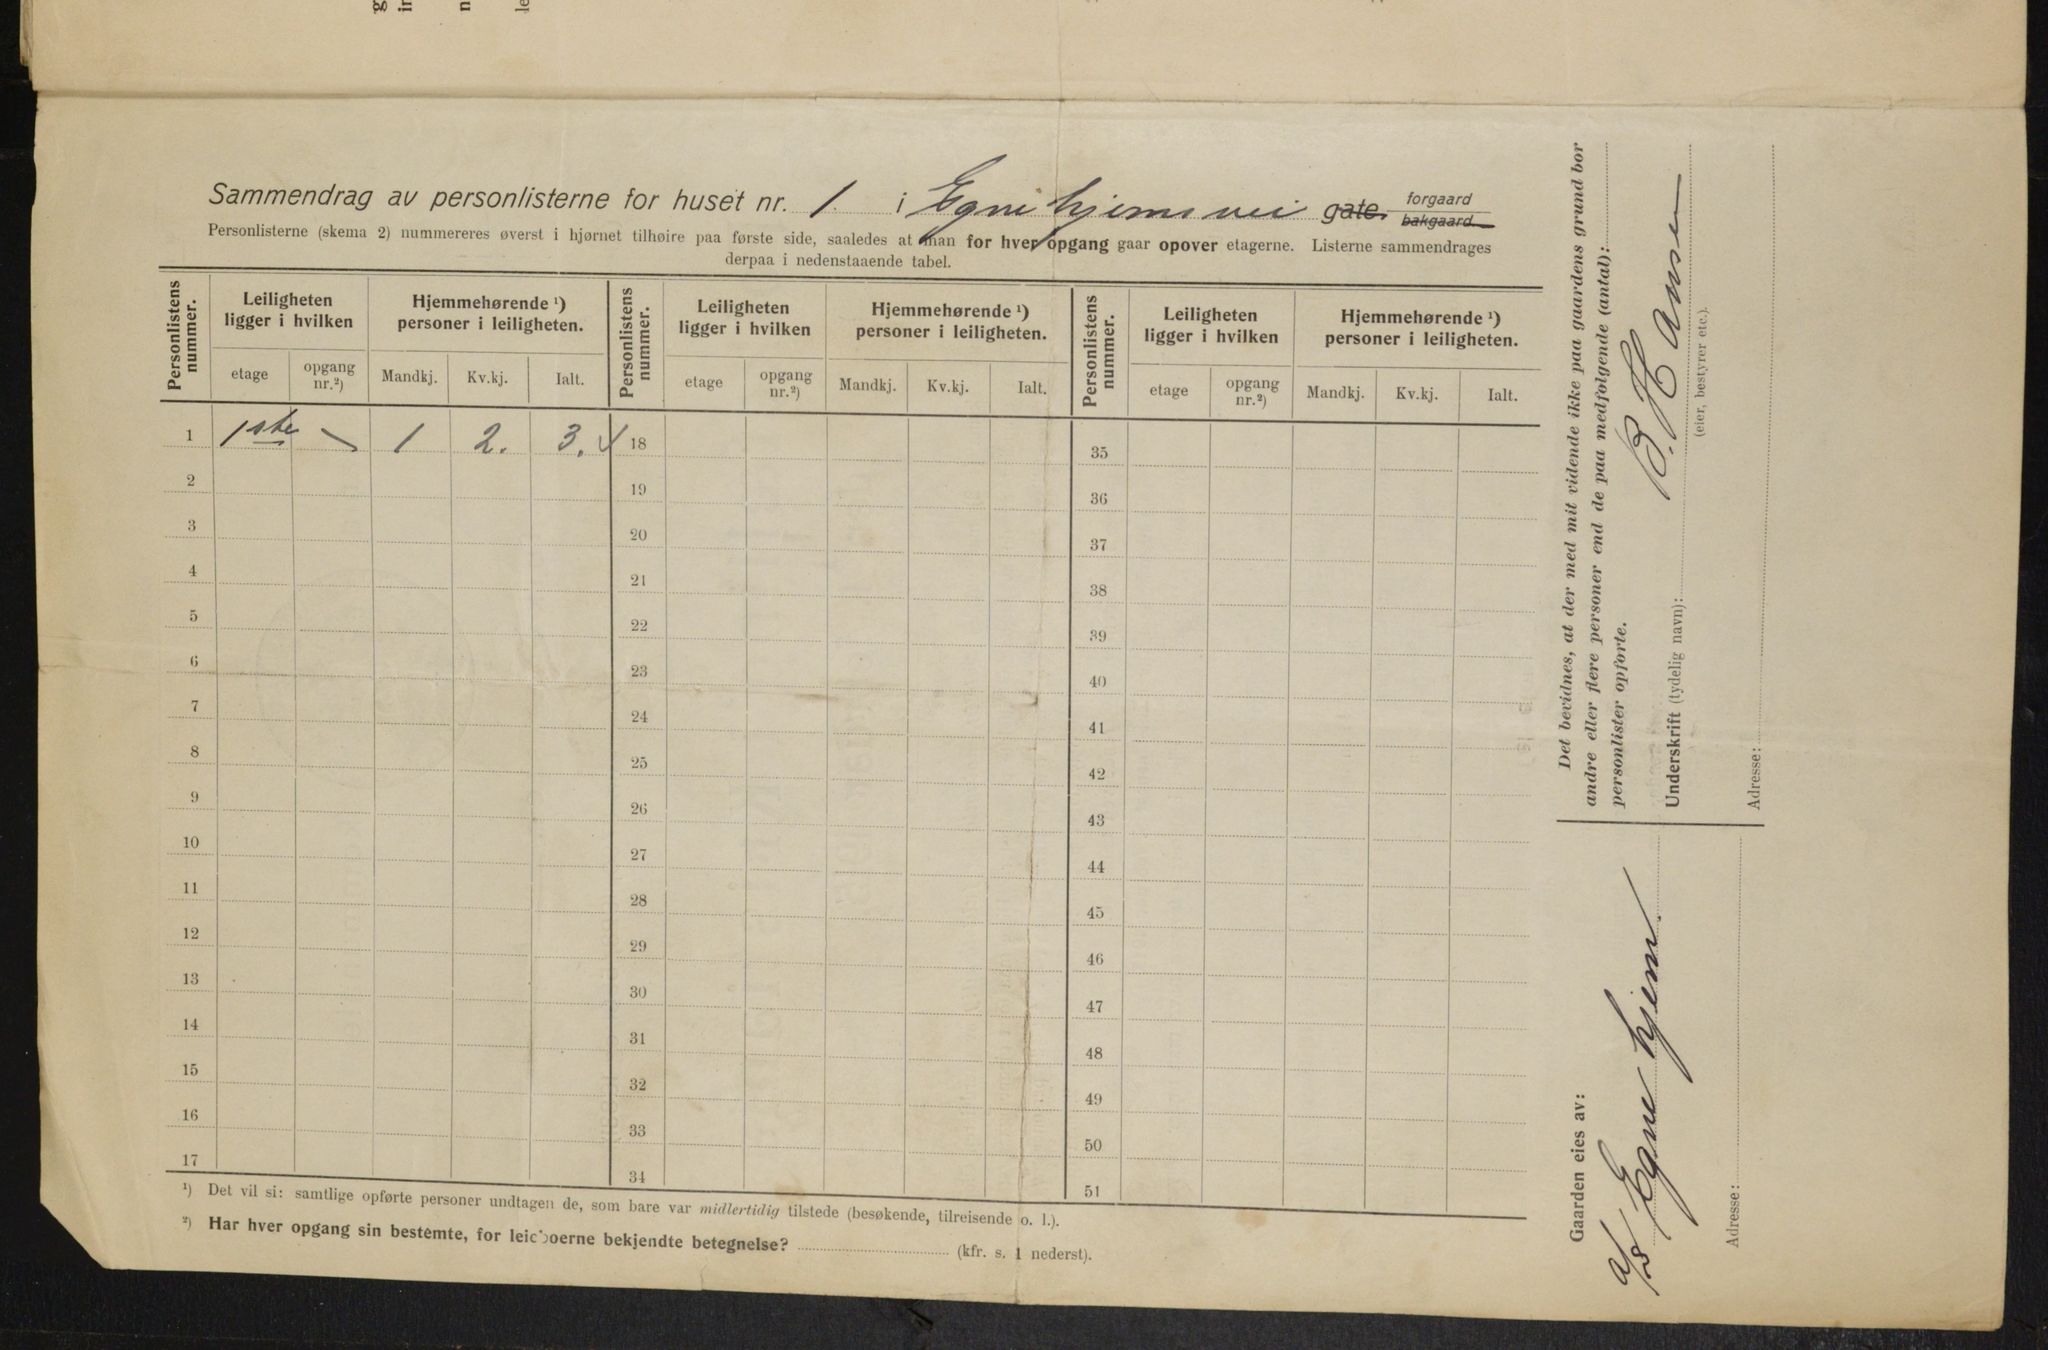 Sammendrag av personlisterne for huset nr. 1. i Egnehjemsvei gate. forgaard bakgaard.
Personlisterne (skema 2) nummereres øverst i hjørnet tilhøire paa første side, saaledes at man for hver opgang gaar opover etagerne. Listerne sammendrages
derpaa i nedenstaaende tabel.
Personlistens nummer. Leiligheten ligger i hvilken Hjemmehørende ¹) personer i leiligheten. Personlistens nummer. Leiligheten ligger i hvilken Hjemmehørende ¹) personer i leiligheten. Personlistens nummer. Leiligheten ligger i hvilken Hjemmehørende ¹) personer i leiligheten.
etage opgang nr.²) Mandkj. Kv.kj. Ialt. etage opgang nr.²) Mandkj. Kv.kj. Ialt. etage opgang nr.²) Mandkj. Kv.kj. Ialt.
1 1ste 1 2. 3. 18 35
2 19 36
3 20 37
4 21 38
5 22 39
6 23 40
7 24 41
8 25 42
9 26 43
10 27 44
11 28 45
12 29 46
13 30 47
14 31 48
15 32 49
16 33 50
17 34 51
¹) Det vil si: samtlige opførte personer undtagen de, som bare var midlertidig tilstede (besøkende, tilreisende o. l.).
²) Har hver opgang sin bestemte, for leieboerne bekjendte betegnelse? (kfr. s. 1 nederst).
Gaarden eies av:
a/s Egne hjem.
Adresse:
Det bevidnes, at der med mit vidende ikke paa gaardens grund bor
andre eller flere personer end de paa medfølgende (antal):
personlister opførte.
Underskrift (tydelig navn): B. Hansen
(eier, bestyrer etc.).
Adresse: